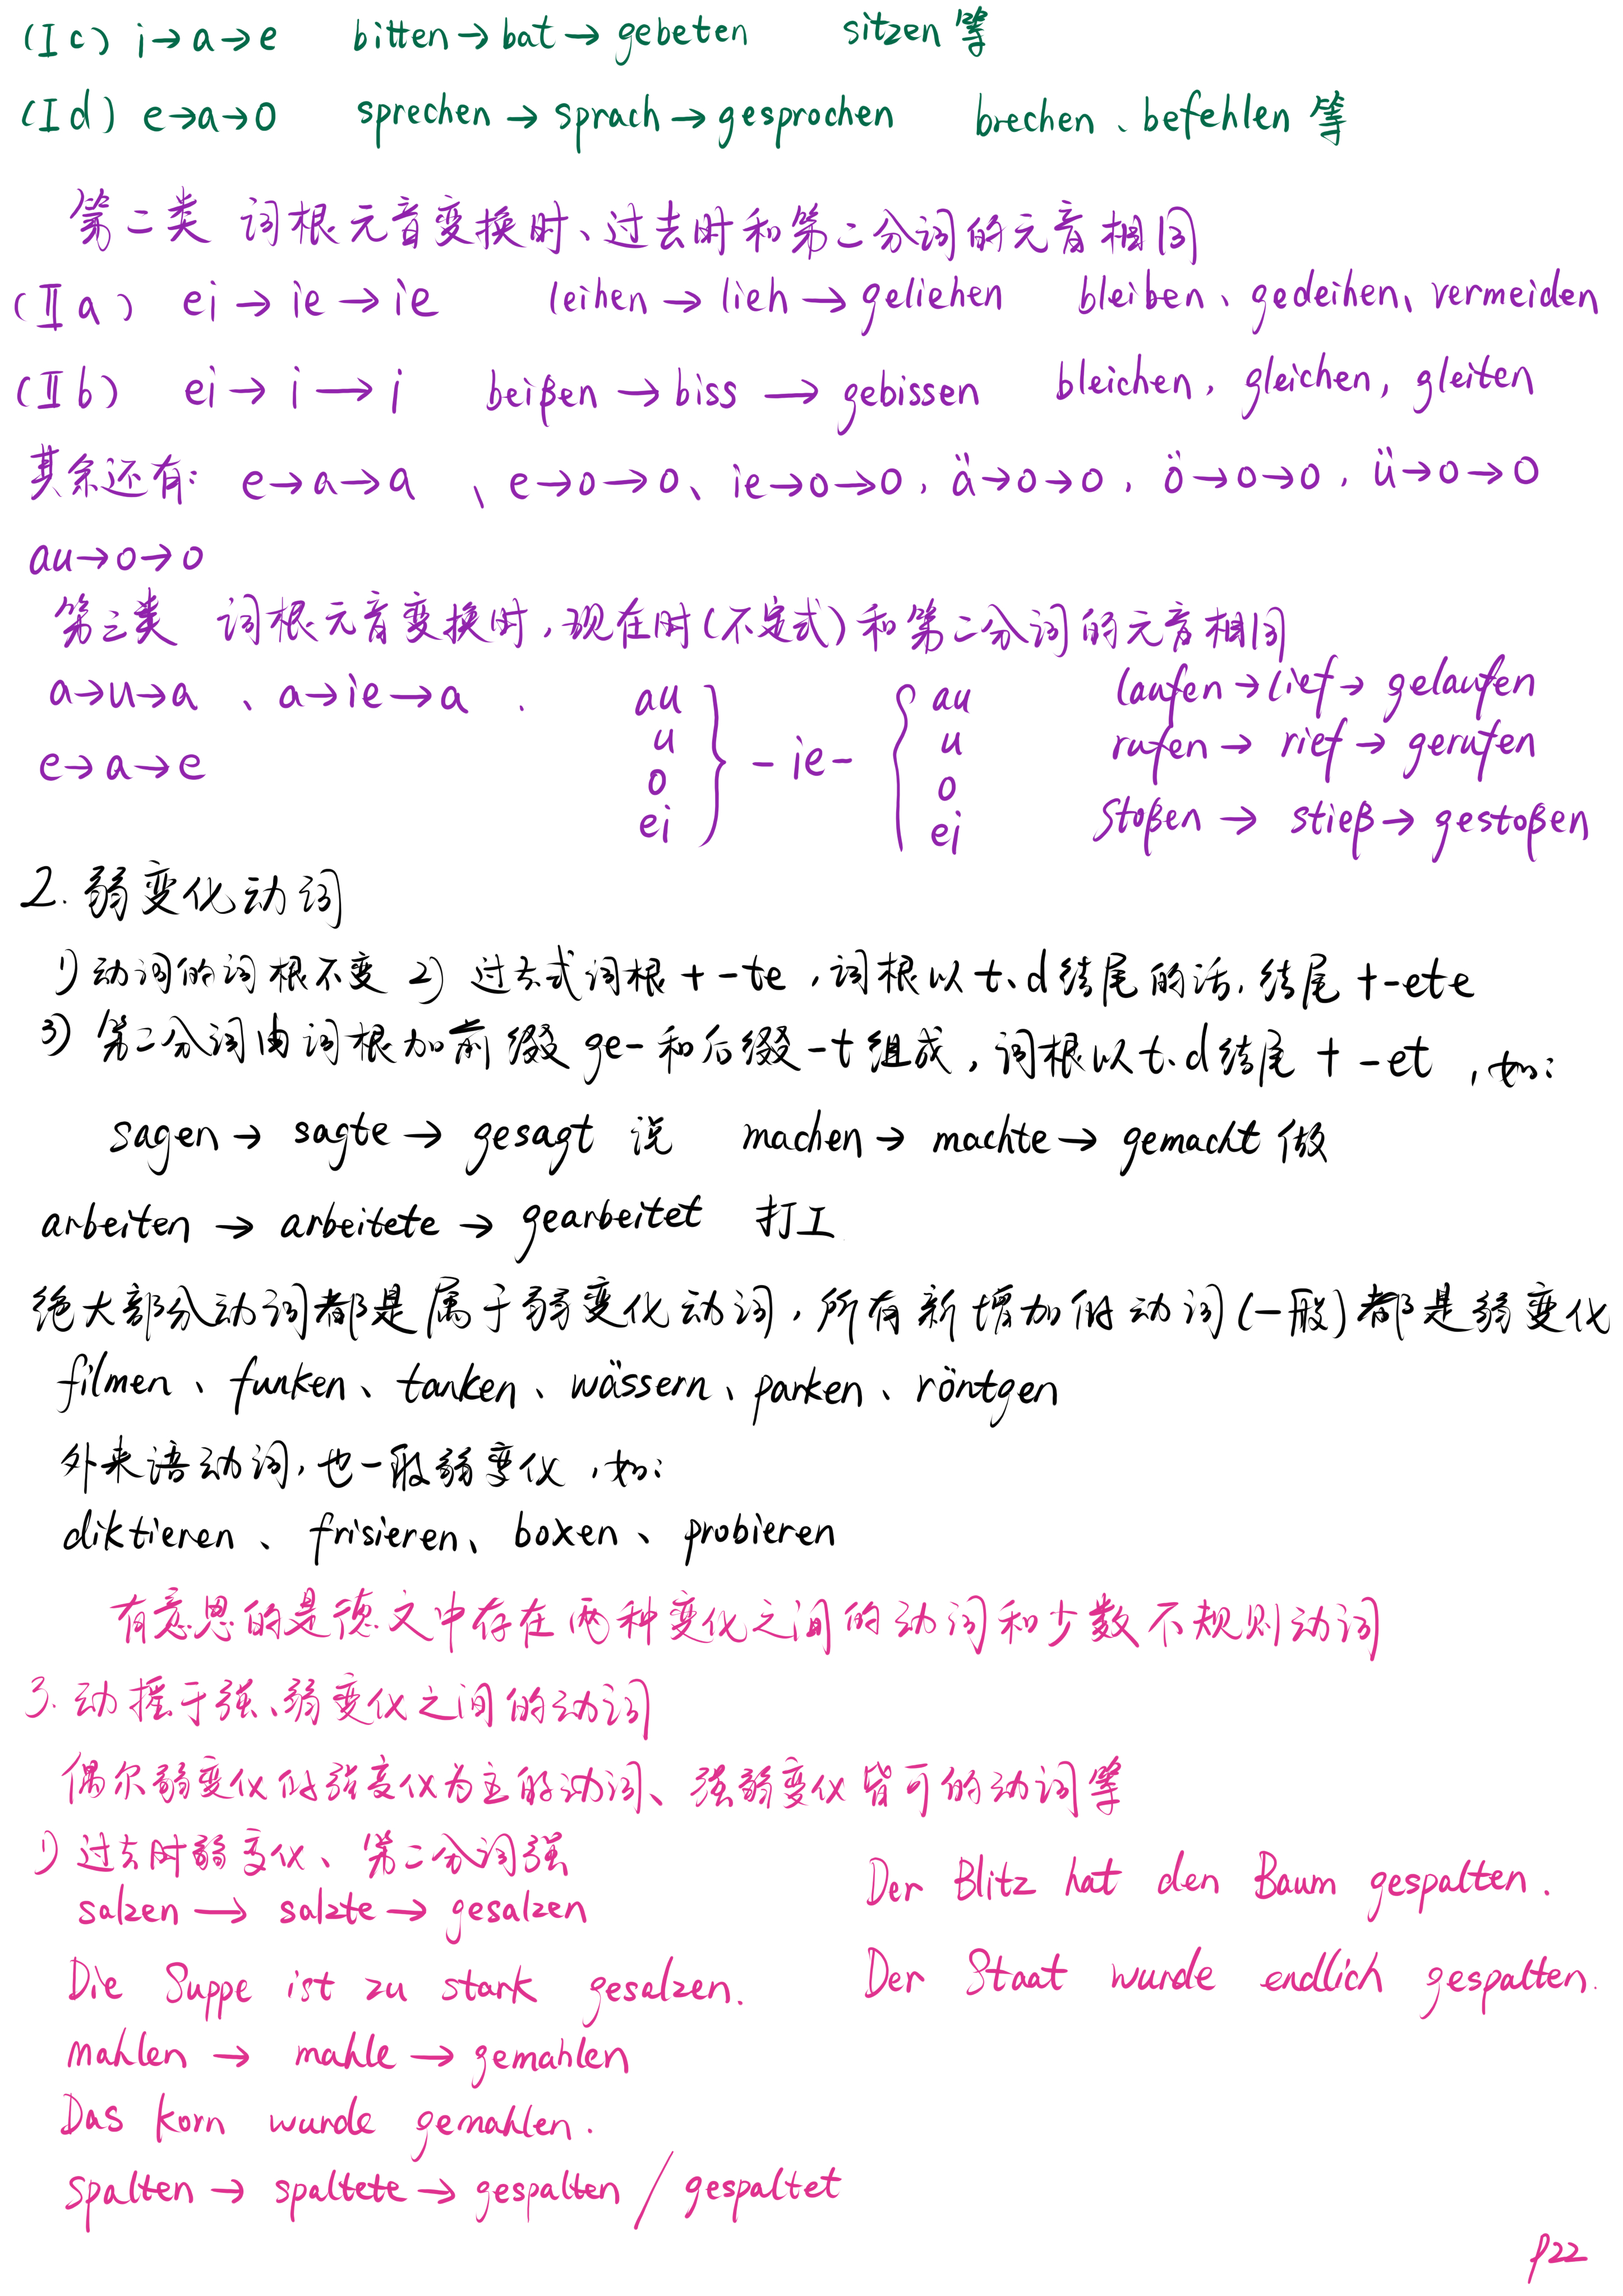 (Ⅰc) i→a→e bitten→bat→gebeten sitzen 等
(Ⅰd) e→a→o sprechen→sprach→gesprochen brechen、befehlen 等
第二类 词根元音变换时、过去时和第二分词的元音相同
(Ⅱa) ei→ie→ie leihen→lieh→geliehen bleiben、gedeihen、vermeiden
(Ⅱb) ei→i→i beißen→biss→gebissen bleichen, gleichen, gleiten
其余还有: e→a→a 、e→o→o、ie→o→o, ä→o→o, ö→o→o, ü→o→o
au→o→o
第三类 词根元音变换时,现在时(不定式)和第二分词的元音相同
a→u→a 、a→ie→a .
e→a→e
au
u
o
ei
} - ie - {
au
u
o
ei
laufen→lief→gelaufen
rufen→rief→gerufen
Stoßen→stieß→gestoßen
2. 弱变化动词
1) 动词的词根不变 2) 过去式词根 + -te ,词根以t、d结尾的话,结尾 +-ete
3) 第二分词由词根加前缀 ge- 和后缀 -t 组成,词根以t、d结尾 + -et ,如:
sagen→sagte→gesagt 说 machen→machte→gemacht 做
arbeiten→arbeitete→gearbeitet 打工
绝大部分动词都是属于弱变化动词,所有新增加的动词(一般)都是弱变化
filmen、funken、tanken、wässern、parken、röntgen
外来语动词,也一般弱变化,如:
diktieren、frisieren、boxen、probieren
有意思的是德文中存在两种变化之间的动词和少数不规则动词
3. 动摇于强、弱变化之间的动词
偶尔弱变化的强变化为主的动词、强弱变化皆可的动词等
1) 过去时弱变化、第二分词强
salzen→salzte→gesalzen
Der Blitz hat den Baum gespalten.
Die Suppe ist zu stark gesalzen.
Der Staat wurde endlich gespalten.
mahlen→mahle→gemahlen
Das Korn wurde gemahlen.
spalten→spaltete→gespalten / gespaltet
P22